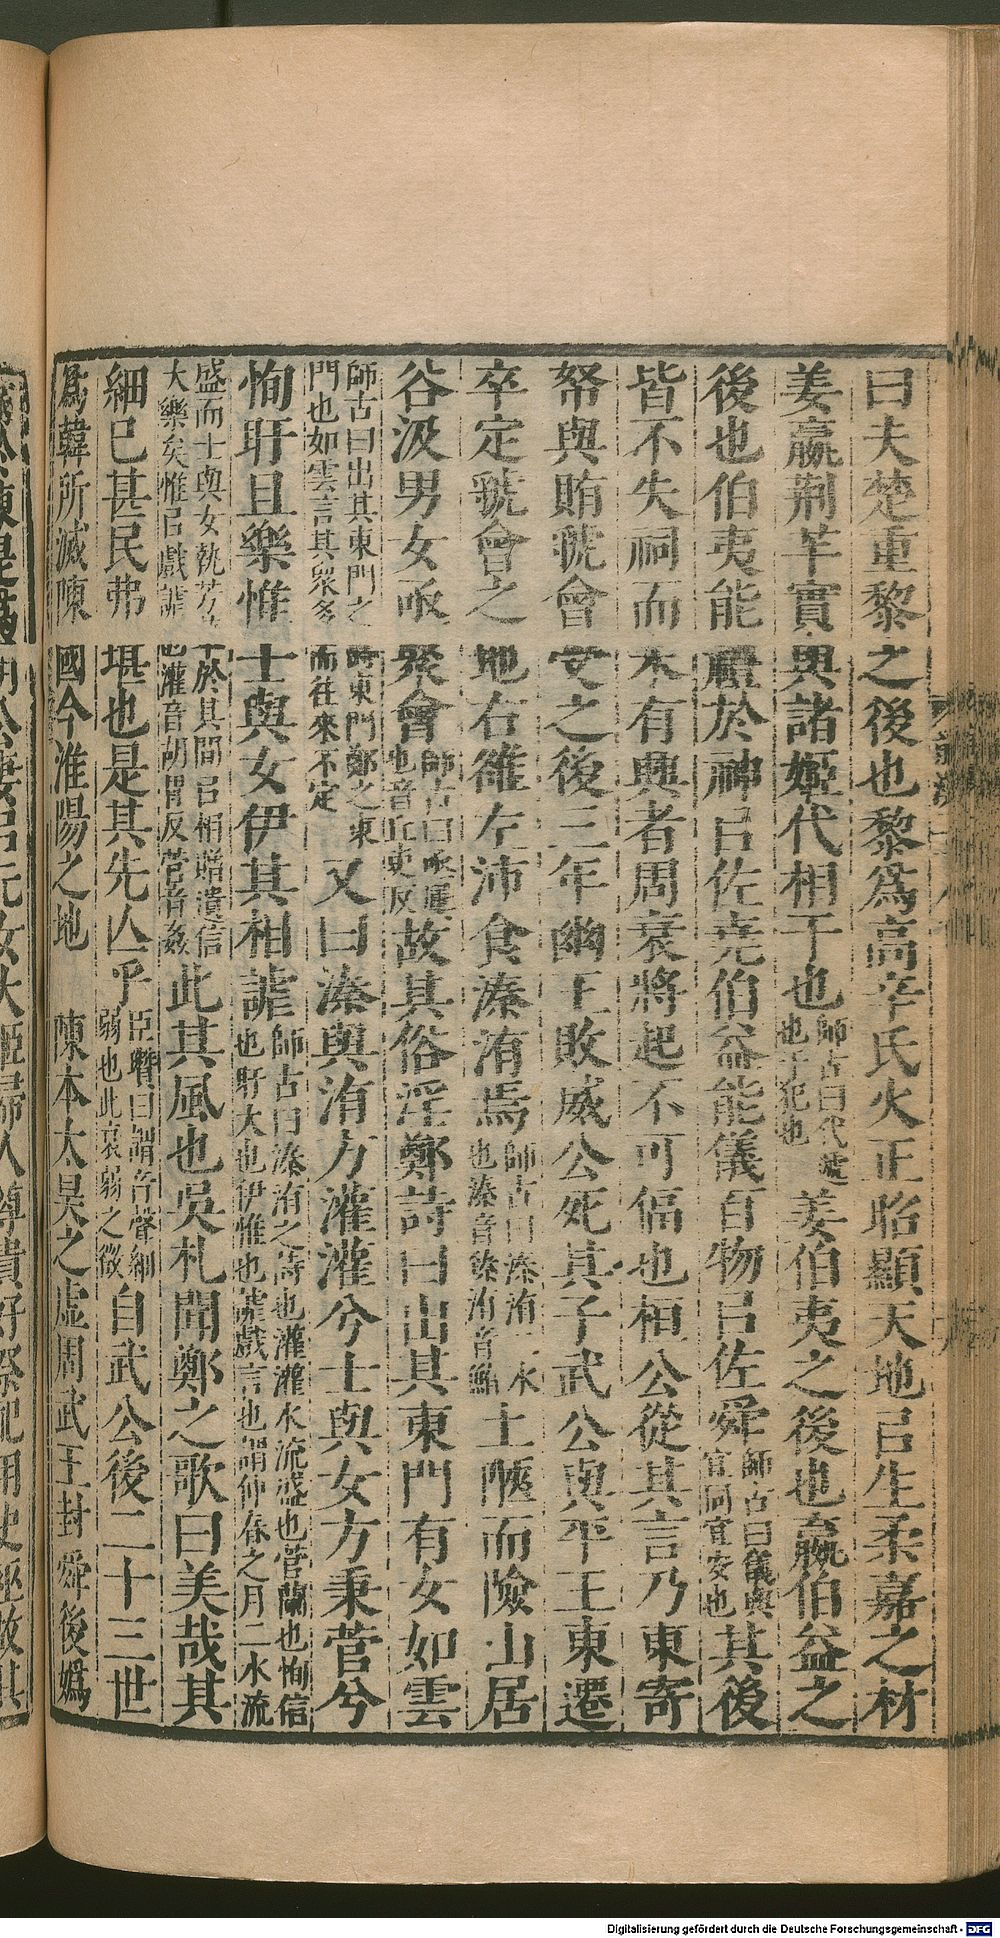 曰夫楚重黎之後也黎爲高辛氏火正昭顯天地㠯生柔嘉之材
姜嬴荆芈實與諸姬代相干也師古曰代遞也干犯也姜伯夷之後也嬴伯益之
後也伯夷能禮於神㠯佐堯伯益能儀百物㠯佐舜師古曰儀與宜同宜安也其後
皆不失祠而未有興者周衰將起不可偪也桓公從其言乃東寄
帑與賄虢會受之後三年幽王敗威公死其子武公與平王東遷
卒定虢會之地右雒左沛食溱洧焉師古曰溱洧二水也溱音臻洧音鮪土陿而險山居
谷汲男女亟聚會師古曰亟屢也音丘吏反故其俗淫鄭詩曰出其東門有女如雲
師古曰出其東門之詩東門鄭之東門也如雲言其衆多而往來不定又曰溱與洧方灌灌兮士與女方秉菅兮
恂盱且樂惟士與女伊其相謔師古曰溱洧之詩也灌灌水流盛也菅蘭也恂信也盱大也伊惟也謔戲言也謂仲春之月二水流
盛而士與女執芳草於其間㠯相贈遺信大樂矣惟㠯戲謔也灌音胡貫反菅音姦此其風也吳札聞鄭之歌曰美哉其
細已甚民弗堪也是其先亾乎臣瓚曰謂音聲細弱也此衰弱之徵自武公後二十三世
爲韓所滅陳國今淮陽之地　陳本太昊之虛周武王封舜後嬀
Digitalisierung gefördert durch die Deutsche Forschungsgemeinschaft - DFG